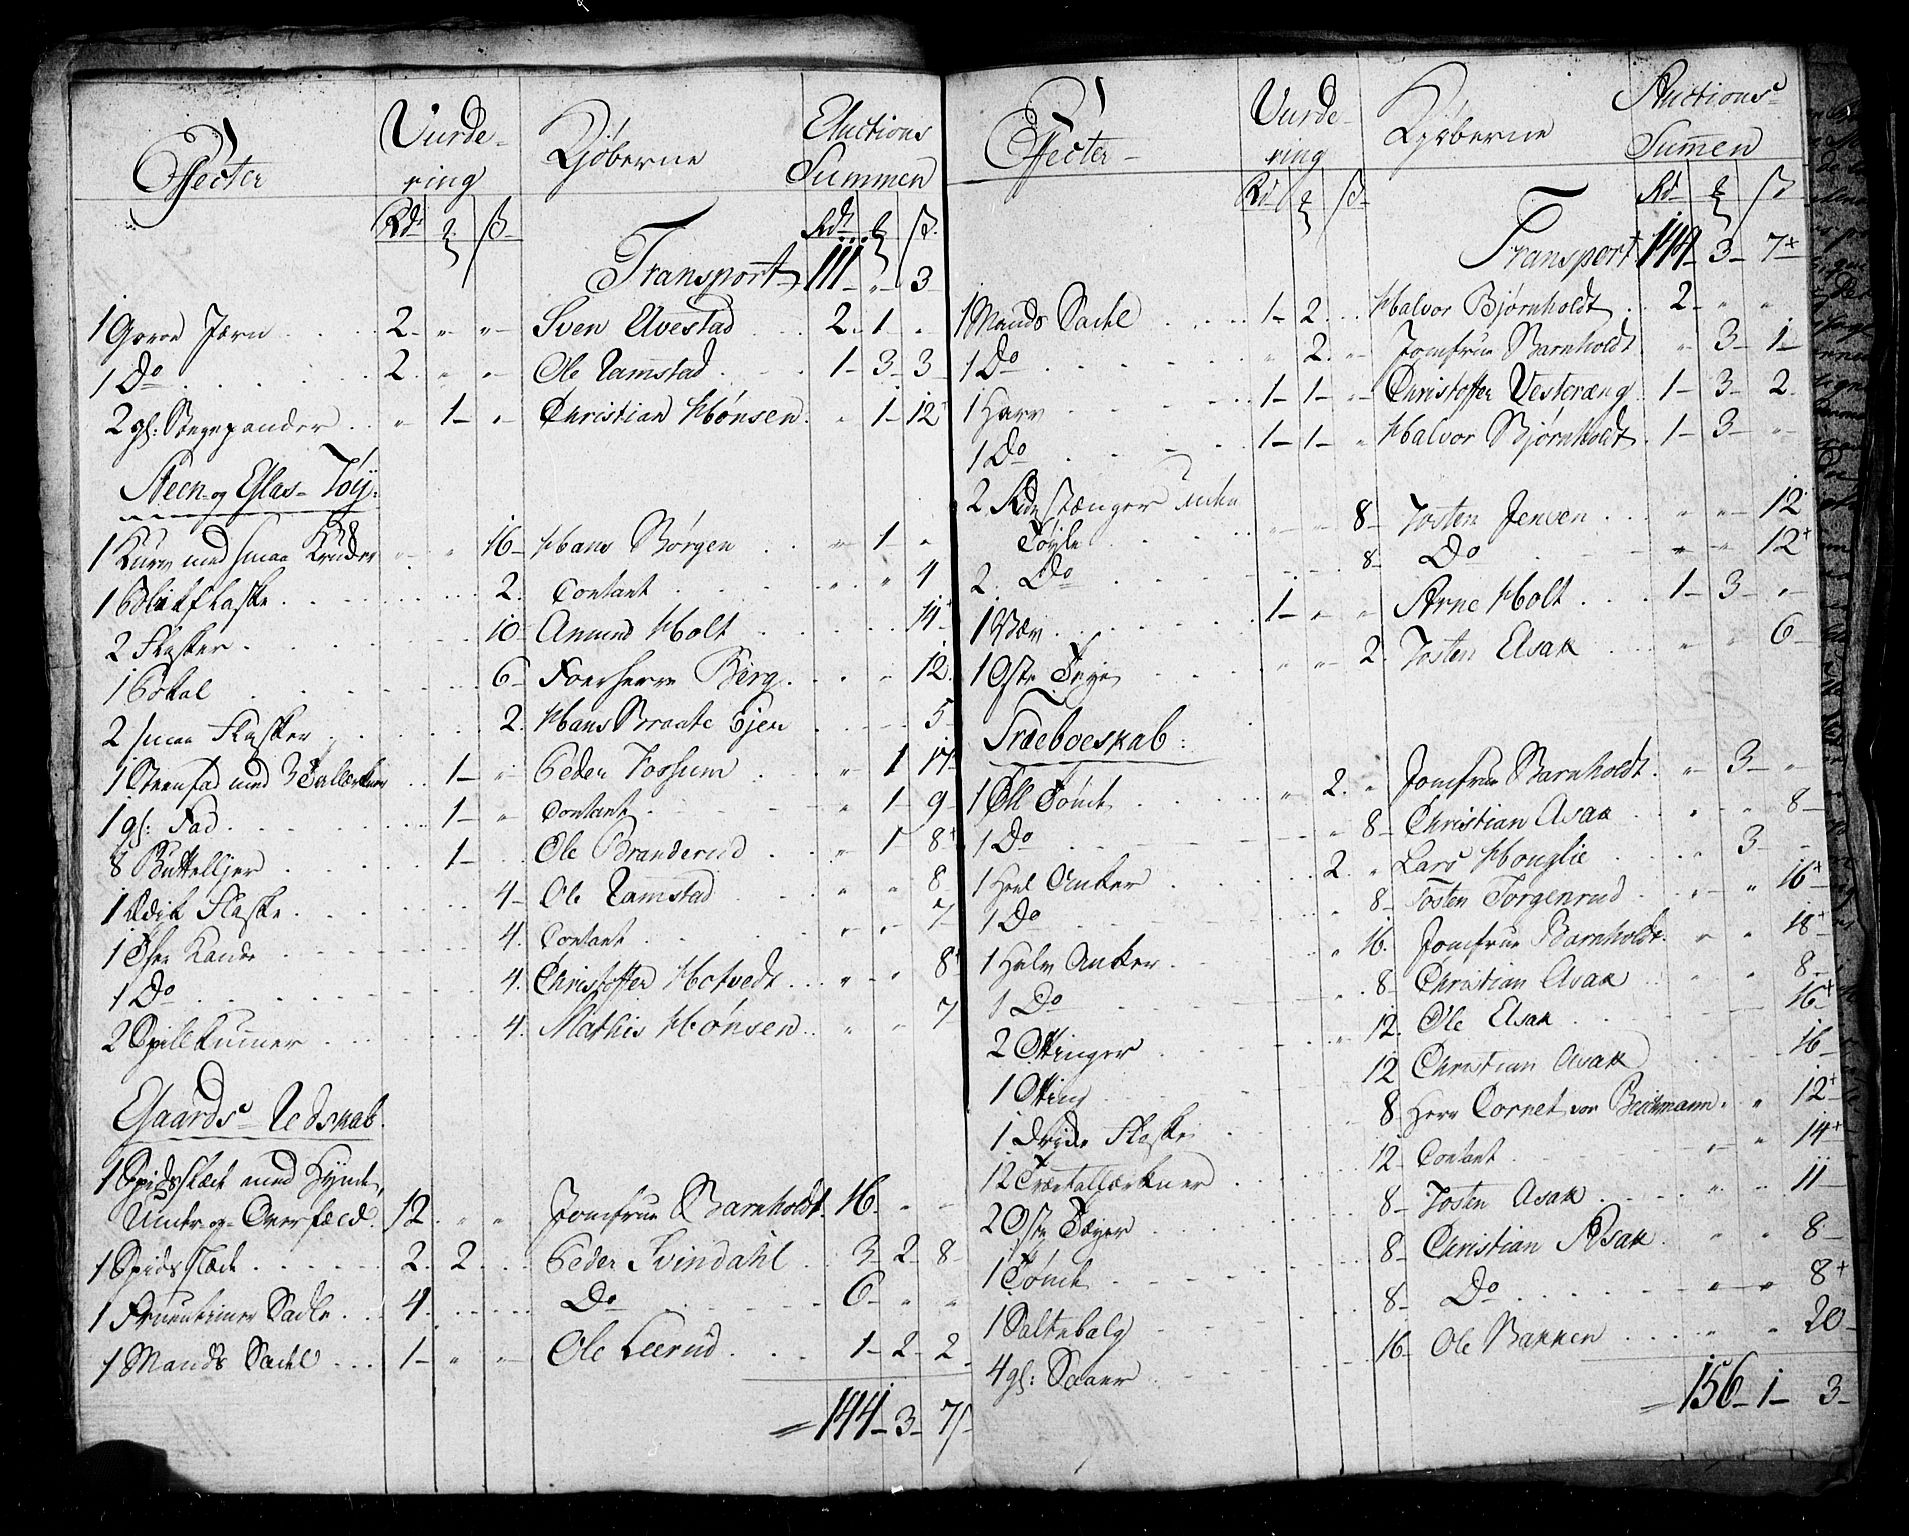 Effecter Vurde- Kjøberne Auctions
ring Summen
Rdr ß Rdr ß
Transport 111 " 3
1 Gorre Jærn 2 " " Sven Avestad 2 1 "
1 Do 2 " " Ole Ramstad 1 3 3
2 gl: Stegepander " 1 " Christian Hønsen " 1 12
Steen- og Glas-Tøy:
1 Kurv med smaa Kruder " " 16 Hans Børgen " 1 "
1 Blikflaske 2 Contant " " 4
2 Flasker 10 Amund Holt 14
1 Pokal 6 Foerherre Berg " " 12
2 smaa Flasker 2 Hans Braate Ejen 5
1 Steenfad med 3 Tallerkner 1 " Peder Fossum " 1 17
1 gl: Fad 1 " Contant " 1 9
8 Buttelljer 1 Ole Branderud " 1 8
1 Ædik Flaske 4 Ole Ramstad " " 8
1 Thee Kande 4 Contant " " 7
1 Do 4 Christoffer Hotvedt " " 8
2 Spillkummer 4 Mathis Hønsen " " 7
Gaards-Redskab.
1 Spidsslæde med Hynde,
Under og Overfæld 12 " " Jomfrue Barnholdt 16 " "
1 Spidsslæde 2 2 Peder Svindahl 3 2 8
1 Fruentimer Sadle 4 Do 6 " "
1 Mands Sadel 1 " " Ole Leerud 1 2 2
= 144 3 7
Effecter Vurde- Kjøberne Auctions-
ring Summen
Rd ß Rd ß
Transport 144 3 7
1 Mands Sadel 1 2 Halvor Bjørnholdt 2 " "
1 Do " 2 " Jomfrue Barnholdt " 3 1
1 Harv 1 1 " Christoffer Vestræng 1 3 2
1 Do 1 1 " Halvor Bjørnholdt 1 3 "
2 Ridestænger uden
Tøyle " " 8 Tosten Jensen " " 12
2 Do 8 Do " " 12
1 Væv 1 " " Arne Holt 1 3 "
1 Oste Teye " " 2 Tosten Asak " " 6
Træboeskab:
1 Øll Tønde " 2 " Jomfrue Barnholdt " 3 "
1 Do " 8 Christian Asak " " 8
1 Heel Anker 2 " Lars Houglie " 3 "
1 Do 8 Tosten Torgenrud " " 16
1 Halv Anker " 16 Jomfrue Barnholdt " " 18
1 Do 8 Christian Asak " " 8
2 Ottinger " 12 Ole Asak 16
1 Otting 12 Christian Asak 16
1 Flaske 8 Herr Cornet von Beichmann " " 12
12 Trætallærkner 12 Contant " " 14
2 Oste Tæyer 8 Tosten Asak " " 11
1 Tønde 8 Christian Asak " " 8
1 Saltebalg 8 Do " " 8
4 gl: Saaer 16 Ole Bakken " " 20
= 156 1 3